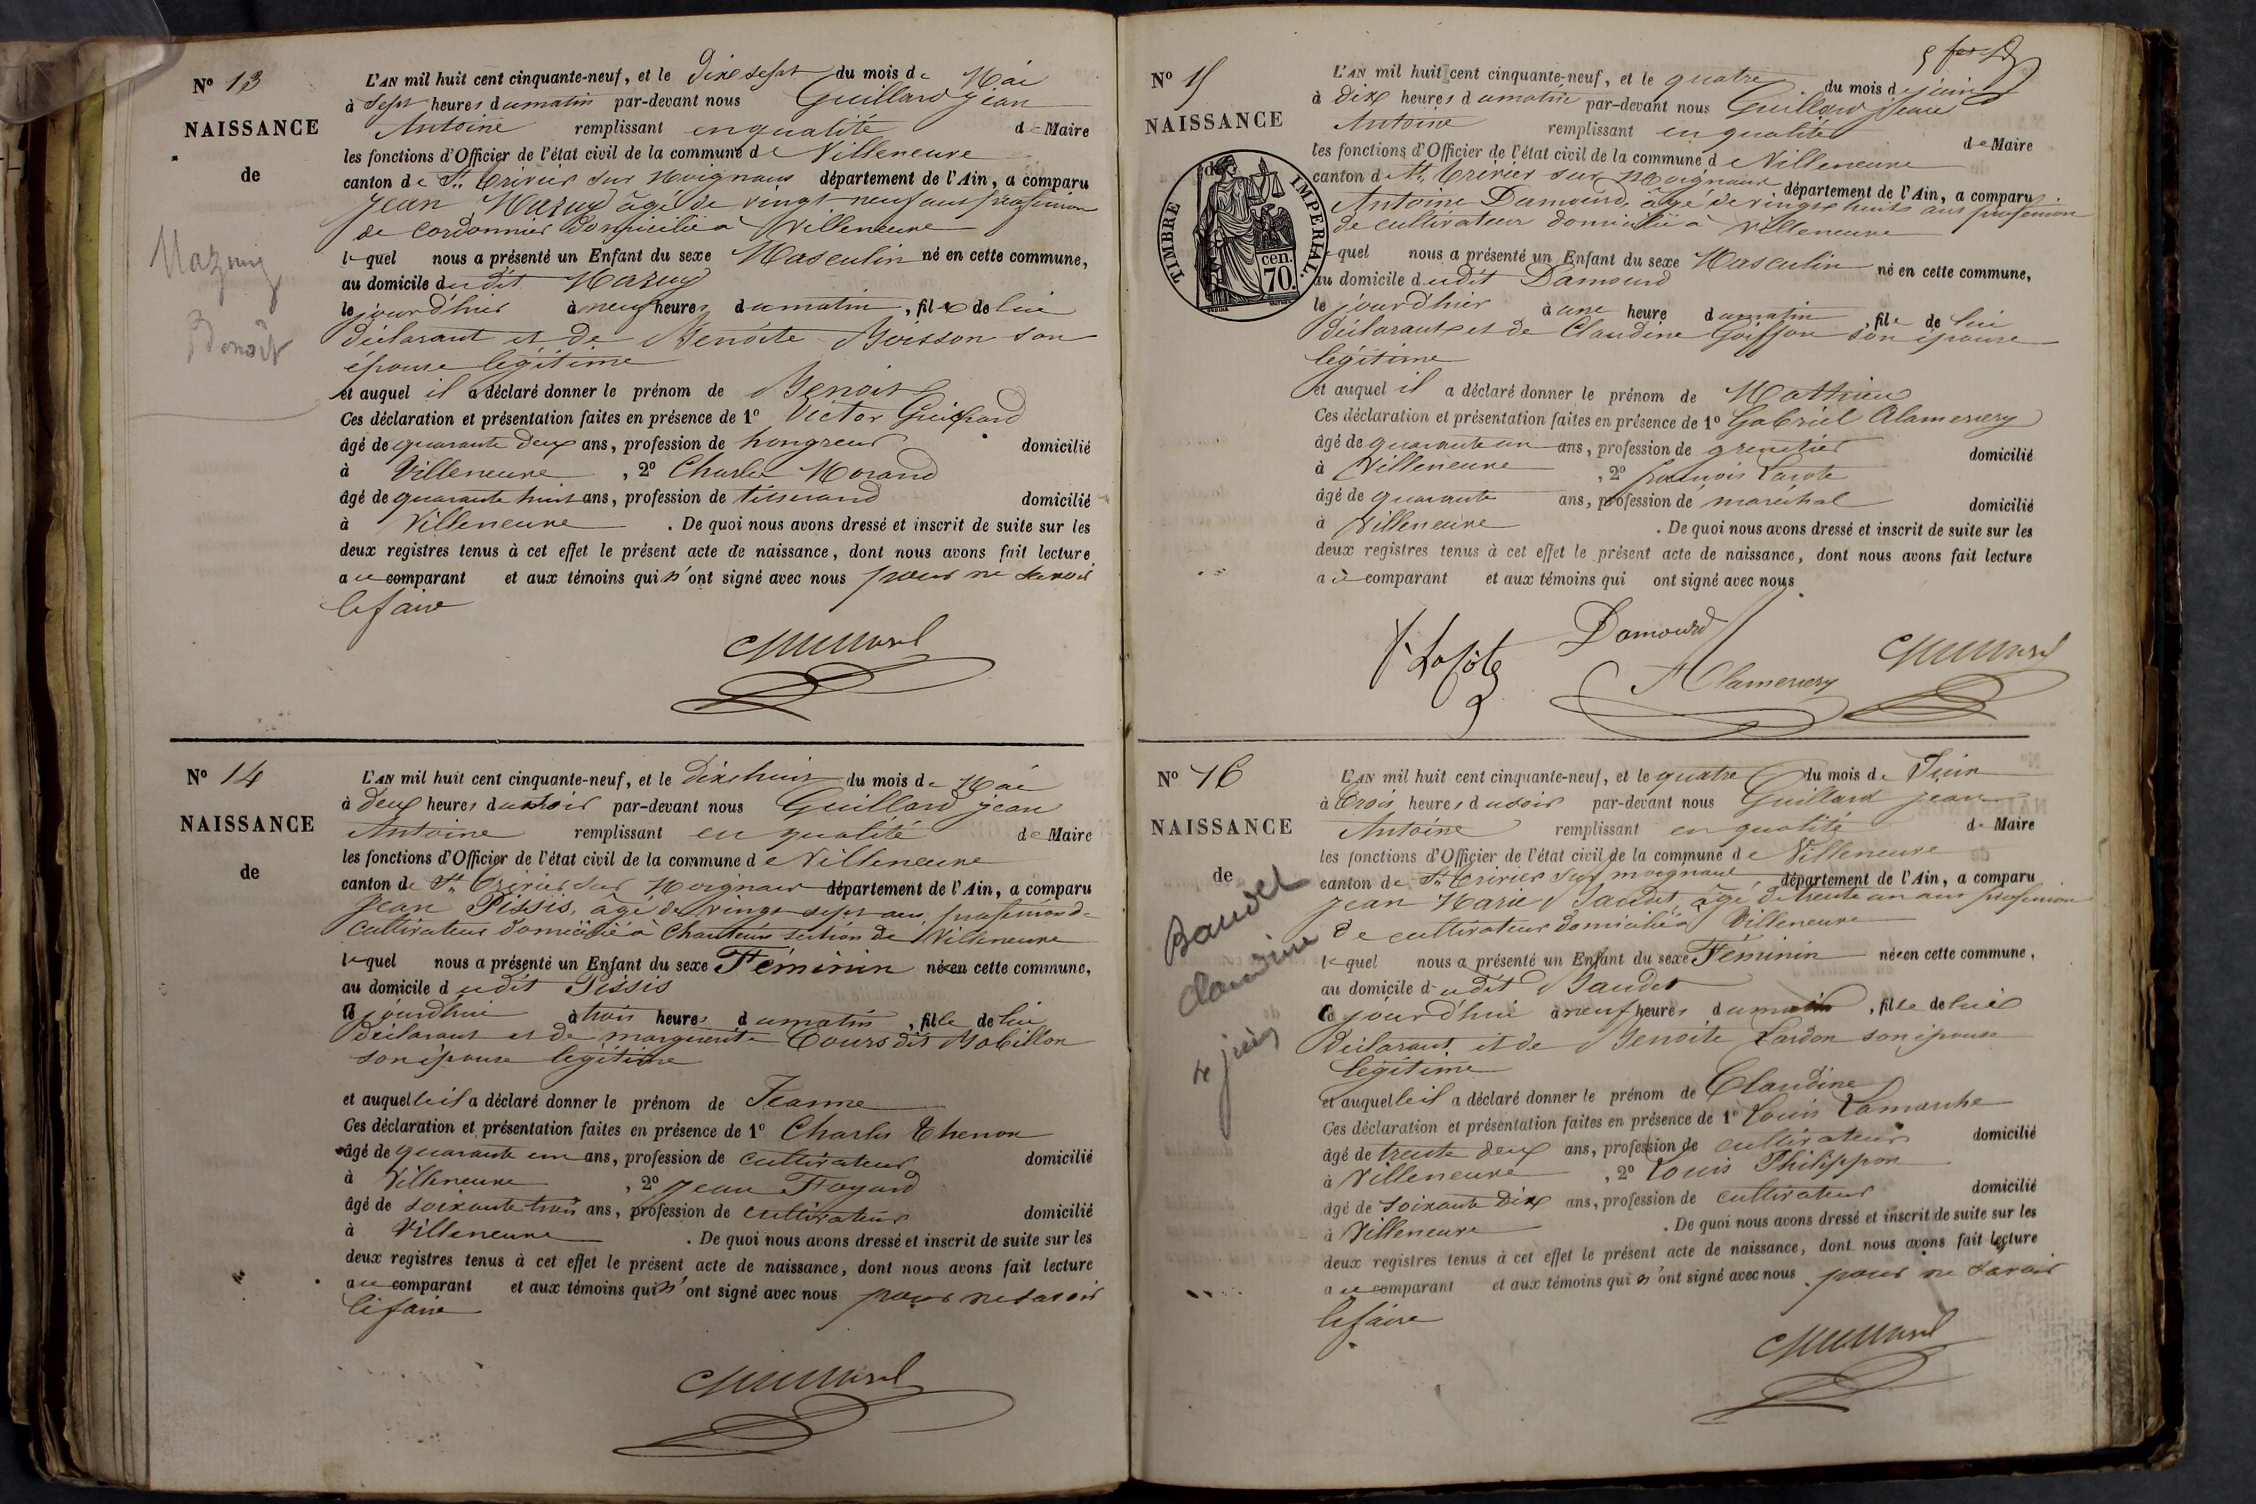 N° 13
NAISSANCE
de
Mazuy
Benoît
L'AN mil huit cent cinquante-neuf, et le dixsept du mois de Mai
à sept heures du matin par-devant nous Guillard jean
Antoine remplissant en qualité de Maire
les fonctions d'Officier de l'état civil de la commune de Villeneuve
canton de St. Trivier sur Moignans département de l'Ain, a comparu
jean Mazuy âgé de vingt neuf ans profession
de cordonnier domicilié à Villeneuve
lequel nous a présenté un Enfant du sexe Masculin né en cette commune,
au domicile dudit Mazuy
le jourd'hier à neuf heures du matin, fils de lui
déclarant et de Benoîte Boisson son
épouse légitime
et auquel il a déclaré donner le prénom de Benoit
Ces déclaration et présentation faites en présence de 1° Victor Guichard
âgé de quarante deux ans, profession de hongreur domicilié
à Villeneuve, 2° Charles Morand
âgé de quarante huit ans, profession de tisserand domicilié
à Villeneuve. De quoi nous avons dressé et inscrit de suite sur les
deux registres tenus à cet effet le présent acte de naissance, dont nous avons fait lecture
au comparant et aux témoins qui n'ont signé avec nous pour ne savoir
le faire
N° 14
NAISSANCE
de
L'AN mil huit cent cinquante-neuf, et le dixhuit du mois de Mai
à deux heures du soir par-devant nous Guillard jean
Antoine remplissant en qualité de Maire
les fonctions d'Officier de l'état civil de la commune de Villeneuve
canton de St. Trivier sur Moignans département de l'Ain, a comparu
jean Pissis, âgé de vingt sept ans, profession de
cultivateur domicilié à Chanteins section de Villeneuve
lequel nous a présenté un Enfant du sexe Féminin née en cette commune,
au domicile dudit Pissis
ce jourd'hui à trois heures du matin, fille de lui
déclarant et de marguerite Cours dit Bobillon
son épouse légitime
et auquelle il a déclaré donner le prénom de Jeanne
Ces déclaration et présentation faites en présence de 1° Charles Thenon
âgé de quarante un ans, profession de cultivateur domicilié
à Villeneuve, 2° jean Fayard
âgé de soixante trois ans, profession de cultivateur domicilié
à Villeneuve. De quoi nous avons dressé et inscrit de suite sur les
deux registres tenus à cet effet le présent acte de naissance, dont nous avons fait lecture
au comparant et aux témoins qui n'ont signé avec nous pour ne savoir
le faire
N° 15
NAISSANCE
TIMBRE IMPERIAL.
cen.
70.
L'AN mil huit cent cinquante-neuf, et le quatre du mois de juin
à dix heures du matin par-devant nous Guillard Jean
Antoine remplissant en qualité de Maire
les fonctions d'Officier de l'état civil de la commune de Villeneuve
canton de St. Trivier sur Moignans département de l'Ain, a comparu
Antoine Damourd, âgé de vingt huit ans profession
de cultivateur domicilié à Villeneuve
lequel nous a présenté un Enfant du sexe Masculin né en cette commune,
au domicile dudit Damourd
le jourd'hier à une heure du matin, fils de lui
déclarant et de Claudine Goiffon son épouse
légitime
et auquel il a déclaré donner le prénom de Mathieu
Ces déclaration et présentation faites en présence de 1° Gabriel Alamercery
âgé de quarante un ans, profession de grenetier domicilié
à Villeneuve, 2° françois Lacote
âgé de quarante ans, profession de maréchal domicilié
à Villeneuve. De quoi nous avons dressé et inscrit de suite sur les
deux registres tenus à cet effet le présent acte de naissance, dont nous avons fait lecture
au comparant et aux témoins qui ont signé avec nous.
Damourd
f. Lacôte
Alamercery
N° 16
NAISSANCE
de
Baudet
Claudine
4 juin
L'AN mil huit cent cinquante-neuf, et le quatre du mois de Juin
à trois heures du soir par-devant nous Guillard jean
Antoine remplissant en qualité de Maire
les fonctions d'Officier de l'état civil de la commune de Villeneuve
canton de St. Trivier sur moignans département de l'Ain, a comparu
jean Marie Baudet, âgé de trente un ans profession
de cultivateur domicilié à Villeneuve
lequel nous a présenté un Enfant du sexe Féminin née en cette commune,
au domicile dudit Baudet
ce jourd'hui à neuf heures du matin, fille de lui
déclarant et de Benoite Lardon son épouse
légitime
et auquelle il a déclaré donner le prénom de Claudine
Ces déclaration et présentation faites en présence de 1° Louis Lamarche
âgé de trente deux ans, profession de cultivateur domicilié
à Villeneuve, 2° Louis Philippon
âgé de soixante dix ans, profession de cultivateur domicilié
à Villeneuve. De quoi nous avons dressé et inscrit de suite sur les
deux registres tenus à cet effet le présent acte de naissance, dont nous avons fait lecture
au comparant et aux témoins qui n'ont signé avec nous pour ne savoir
le faire